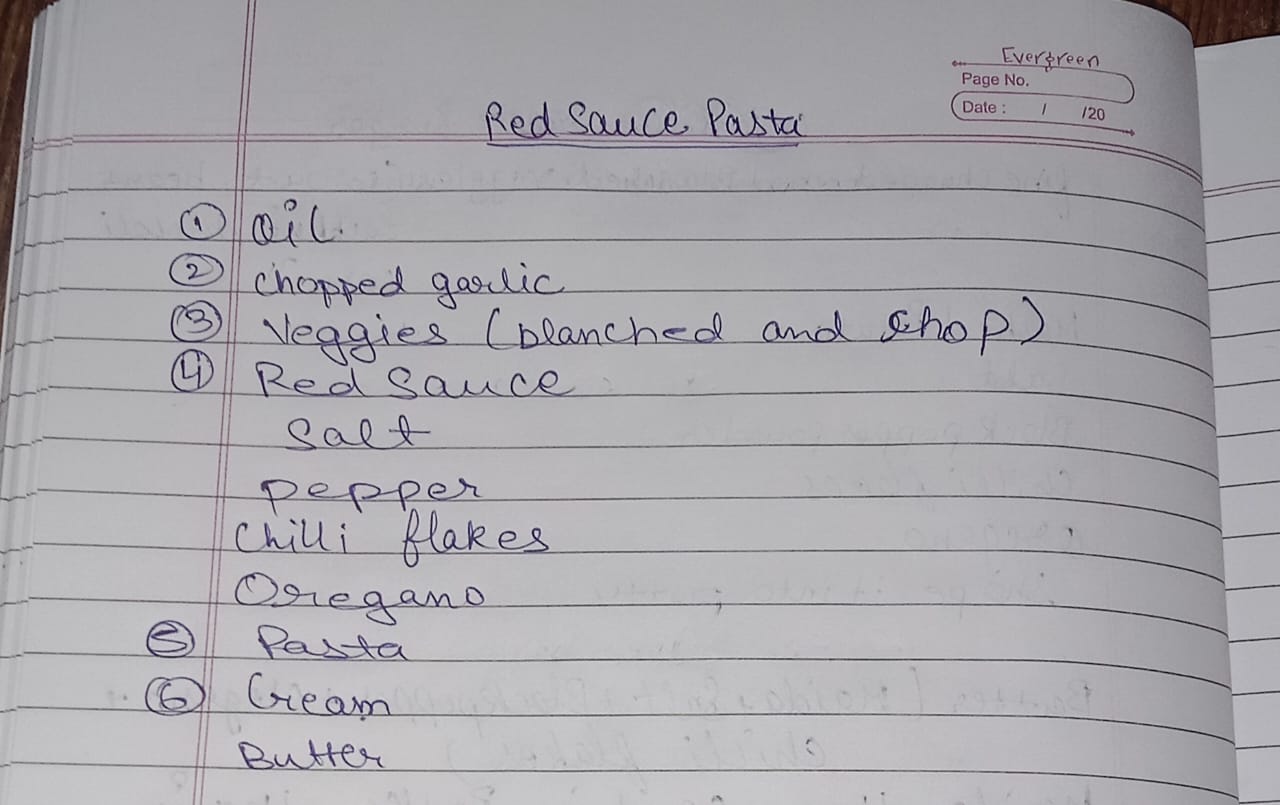 Evergreen
Page No.
Date : / /20
Red Sauce Pasta
① oil
② chopped garlic
③ Veggies (blanched and chop)
④ Red Sauce
Salt
pepper
Chilli flakes
Oregano
⑤ Pasta
⑥ Cream
Butter